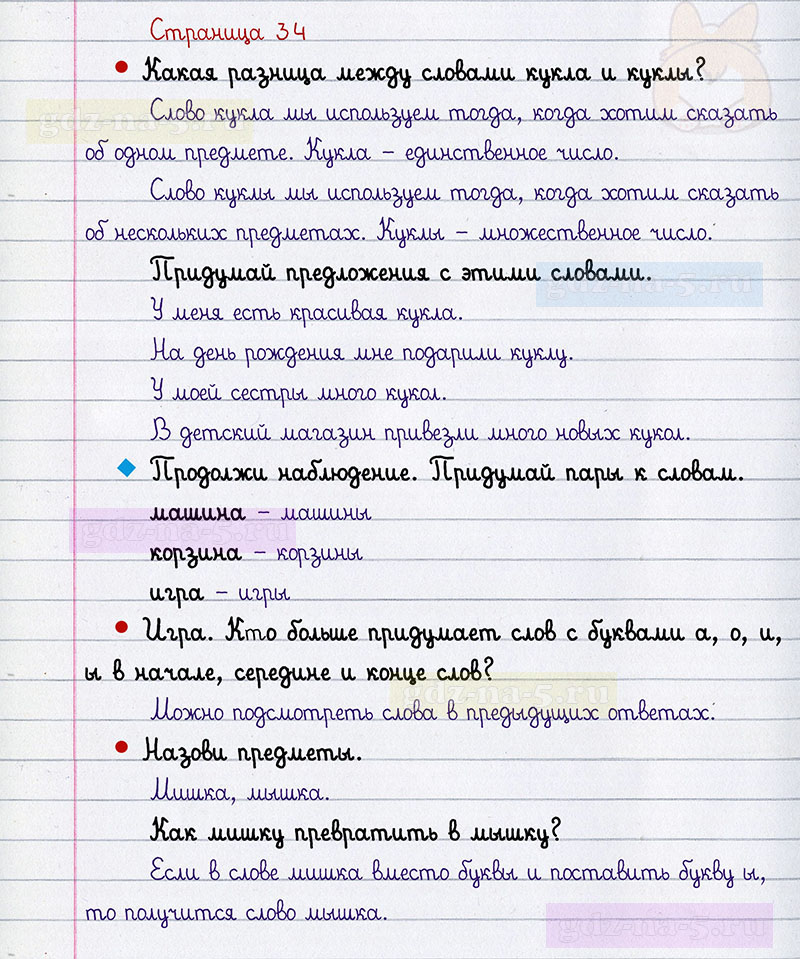 Страница 34
• Какая разница между словами кукла и куклы?
Слово кукла мы используем тогда, когда хотим сказать
об одном предмете. Кукла – единственное число.
Слово куклы мы используем тогда, когда хотим сказать
об нескольких предметах. Куклы – множественное число.
Придумай предложения с этими словами.
У меня есть красивая кукла.
На день рождения мне подарили куклу.
У моей сестры много кукол.
В детский магазин привезли много новых кукол.
Продолжи наблюдение. Придумай пары к словам.
машина – машины
корзина – корзины
игра – игры
• Игра. Кто больше придумает слов с буквами а, о, и,
ы в начале, середине и конце слов?
Можно подсмотреть слова в предыдущих ответах.
• Назови предметы.
Мишка, мышка.
Как мишку превратить в мышку?
Если в слове мишка вместо буквы и поставить букву ы,
то получится слово мышка.
gdz-na-5.ru
gdz-na-5.ru
gdz-na-5.ru
gdz-na-5.ru
gdz-na-5.ru